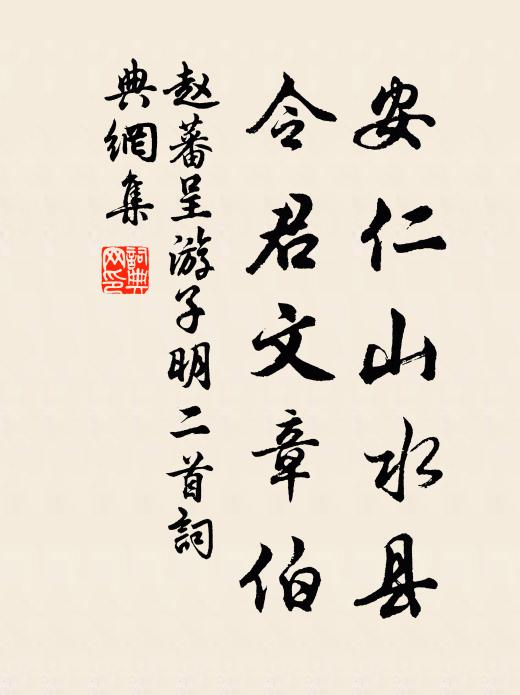 安仁山水县
令君文章伯
赵蕃呈游子明二首詞
典網集
詞典
网印